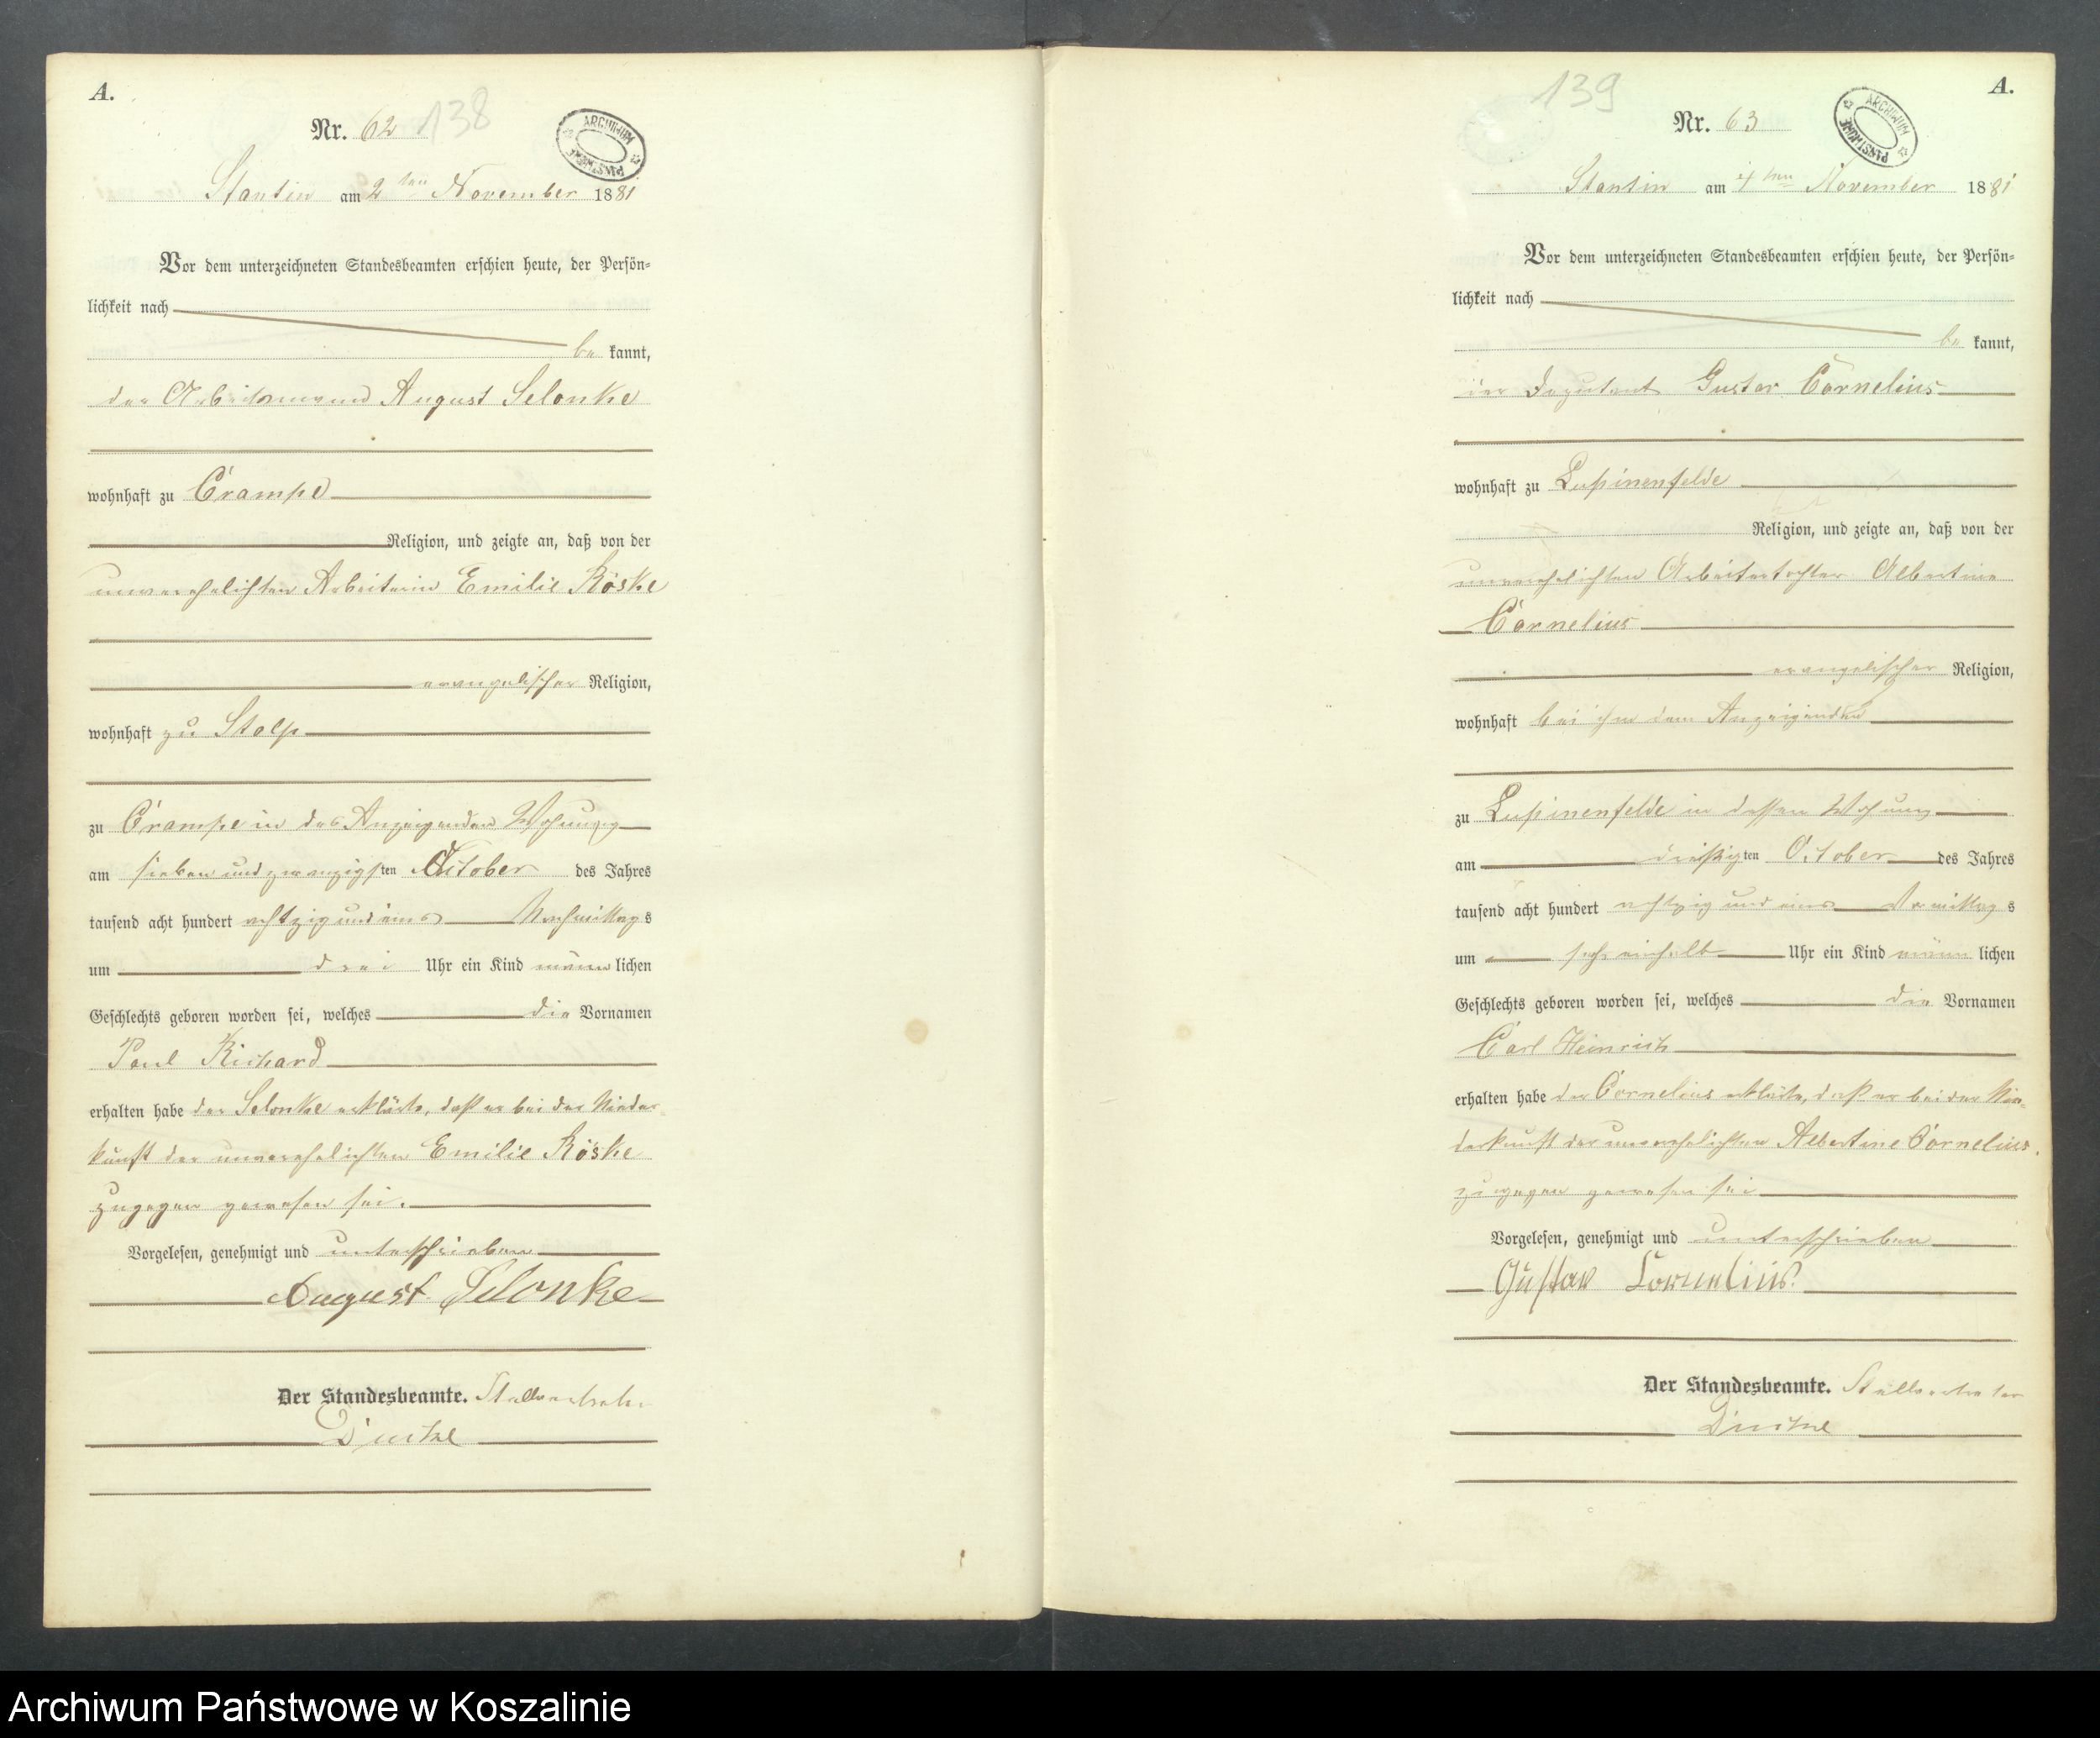 A.
Nr. 62
138
ARCHIWUM PAŃSTWOWE
Stantin am 2ten November 1881
Vor dem unterzeichneten Standesbeamten erschien heute, der Persön=
lichkeit nach
be kannt,
der Arbeitsmann August Selonke
wohnhaft zu Crampe
Religion, und zeigte an, daß von der
unverehelichten Arbeiterin Emilie Röske
evangelischer Religion,
wohnhaft zu Stolp
zu Crampe in des Anzeigenden Wohnung
am sieben und zwanzigsten October des Jahres
tausend acht hundert achtzig und eins Nachmittags
um drei Uhr ein Kind männlichen
Geschlechts geboren worden sei, welches die Vornamen
Paul Richard
erhalten habe der Selonke erklärte, daß er bei der Nieder-
kunft der unverehelichten Emilie Röske
zugegen gewesen sei.
Vorgelesen, genehmigt und unterschrieben
August Selonke
Der Standesbeamte. Stellvertreter
A.
139
Nr. 63
ARCHIWUM PAŃSTWOWE
Stantin am 4ten November 1881
Vor dem unterzeichneten Standesbeamten erschien heute, der Persön=
lichkeit nach
be kannt,
der Deputant Gustav Cornelius
wohnhaft zu Lupinenfelde
Religion, und zeigte an, daß von der
unverehelichten Arbeitertochter Albertine
Cornelius
evangelischer Religion,
wohnhaft bei ihm dem Anzeigenden
zu Lupinenfelde in dessen Wohnung
am dreißigten October des Jahres
tausend acht hundert achtzig und eins Vormittags
um sechseinhalb Uhr ein Kind männlichen
Geschlechts geboren worden sei, welches die Vornamen
Carl Heinrich
erhalten habe der Cornelius erklärte, daß er bei der Nie-
derkunft der unverehelichten Albertine Cornelius
zugegen gewesen sei
Vorgelesen, genehmigt und unterschrieben
Gustav Cornelius.
Der Standesbeamte. Stellvertreter
Archiwum Państwowe w Koszalinie